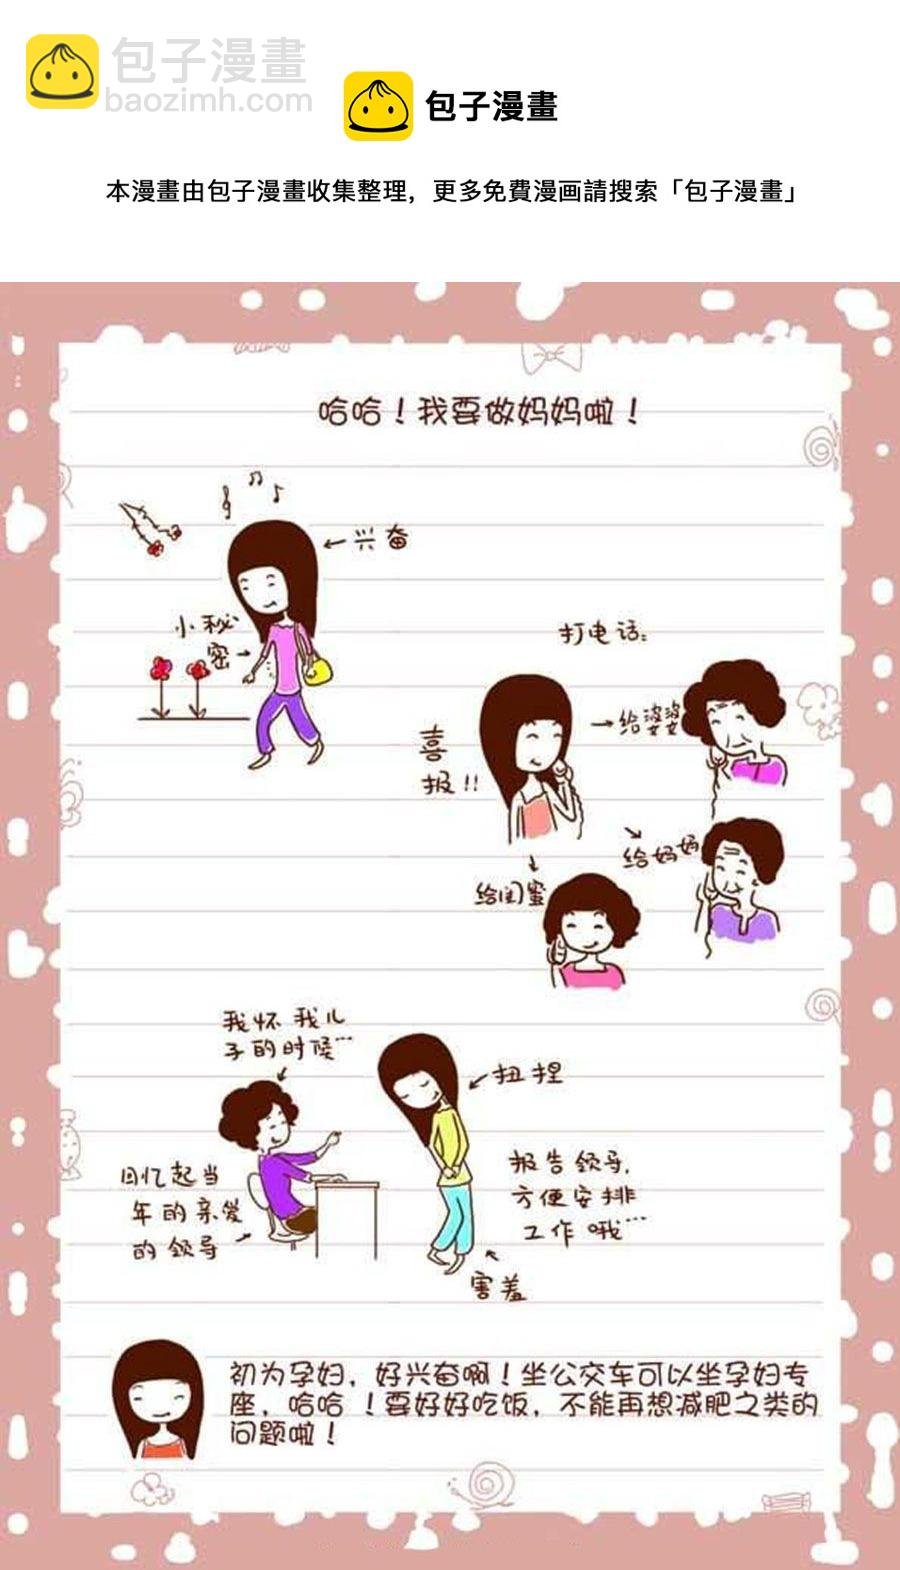 包子漫畫
baozimh.com
包子漫畫
本漫畫由包子漫畫收集整理，更多免費漫画請搜索「包子漫畫」
哈哈！我要做妈妈啦！
兴奋
小秘
密
打电话：
喜
报!!
给婆婆
给妈妈
给闺蜜
我怀我儿
子的时候…
扭捏
回忆起当
年的亲爱
的领导
报告领导，
方便安排
工作哦…
害羞
初为孕妇，好兴奋啊！坐公交车可以坐孕妇专
座，哈哈！要好好吃饭，不能再想减肥之类的
问题啦！